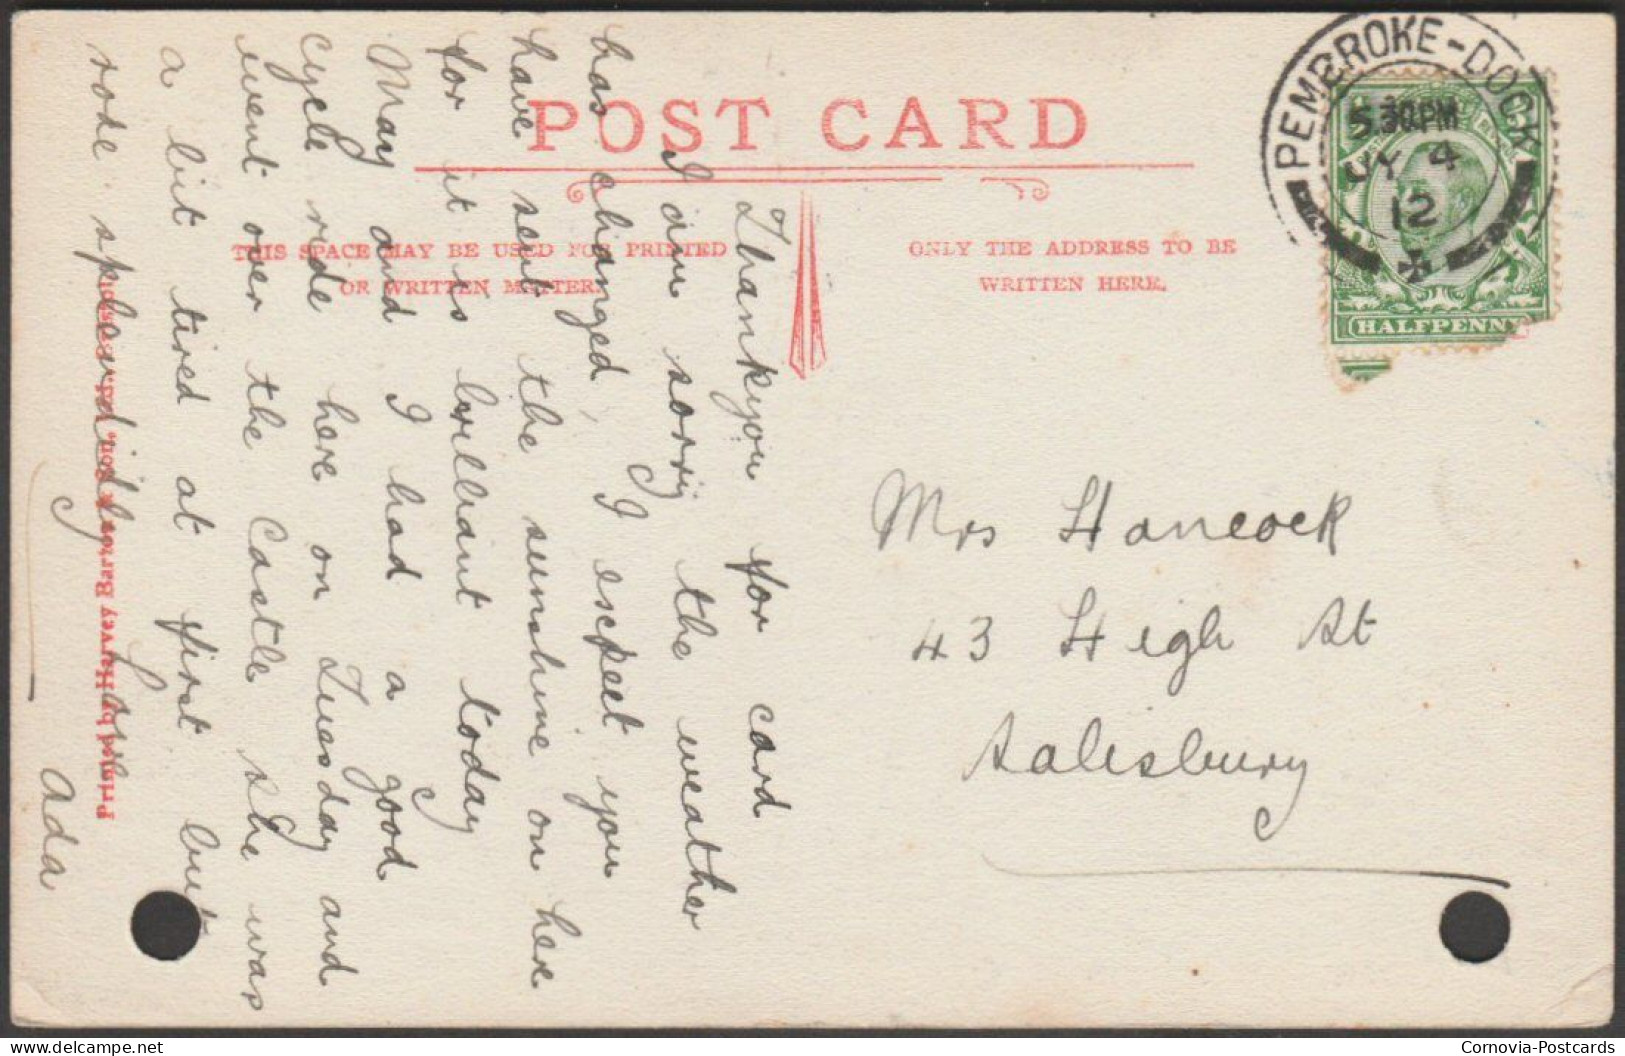 POST CARD
THIS SPACE MAY BE USED FOR PRINTED
OR WRITTEN MATTER.
ONLY THE ADDRESS TO BE
WRITTEN HERE.
PEMBROKE-DOCK
5.30PM
JY 4
12
HALFPENNY
Thankyou for card
I am sorry the weather
has changed, I escpect you
have sent the sunshine on here
for it is brilliant today
May and I had a good
cycle ride here on Tuesday and
went over the Castle she was
a bit tired at first but
rode splendidly
Ada
Mrs Hancock
43 High St
Salisbury
Printed by Harvey Barton & Son, Ltd.,
Cornovia-Postcards